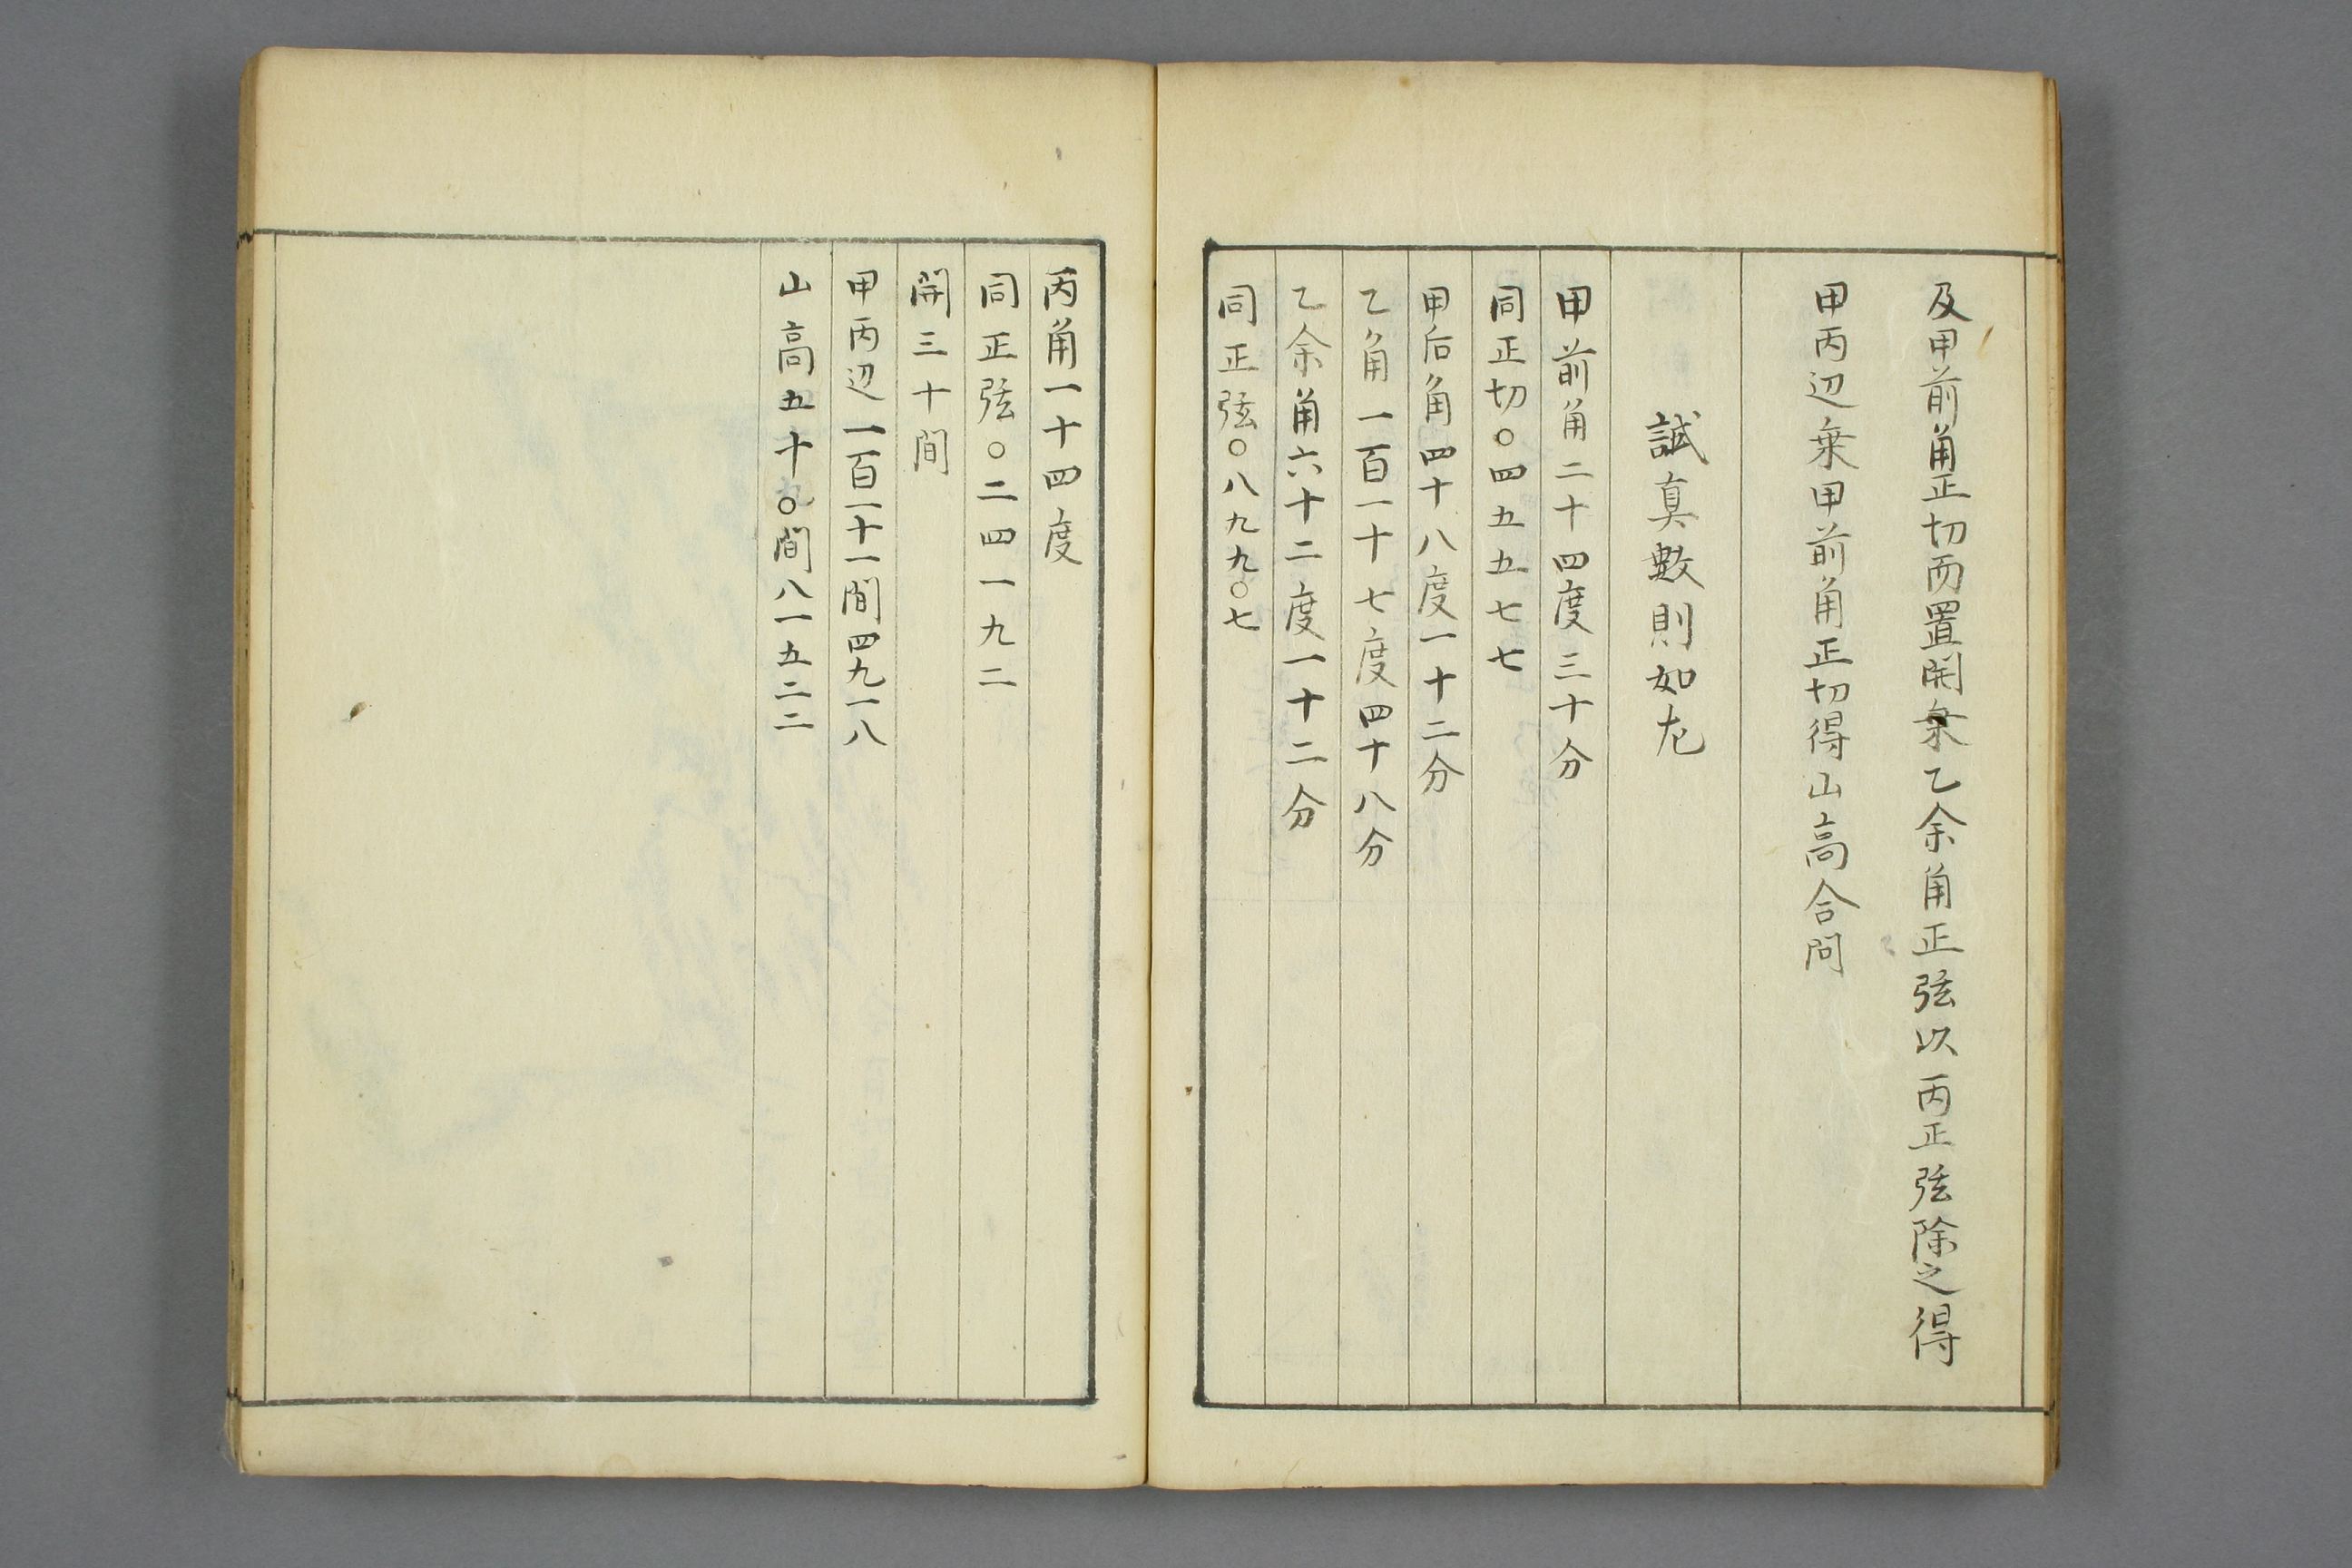 及甲前角正切而置開乗乙余角正弦以丙正弦除之得
甲丙辺乗甲前角正切得山高合問
試真數則如左
甲前角二十四度三十分
同正切〇四五五七七
甲后角四十八度一十二分
乙角一百一十七度四十八分
乙余角六十二度一十二分
同正弦〇八九九〇七
丙角一十四度
同正弦〇二四一九二
開三十間
甲丙辺一百一十一間四九一八
山高五十〇間八一五二二